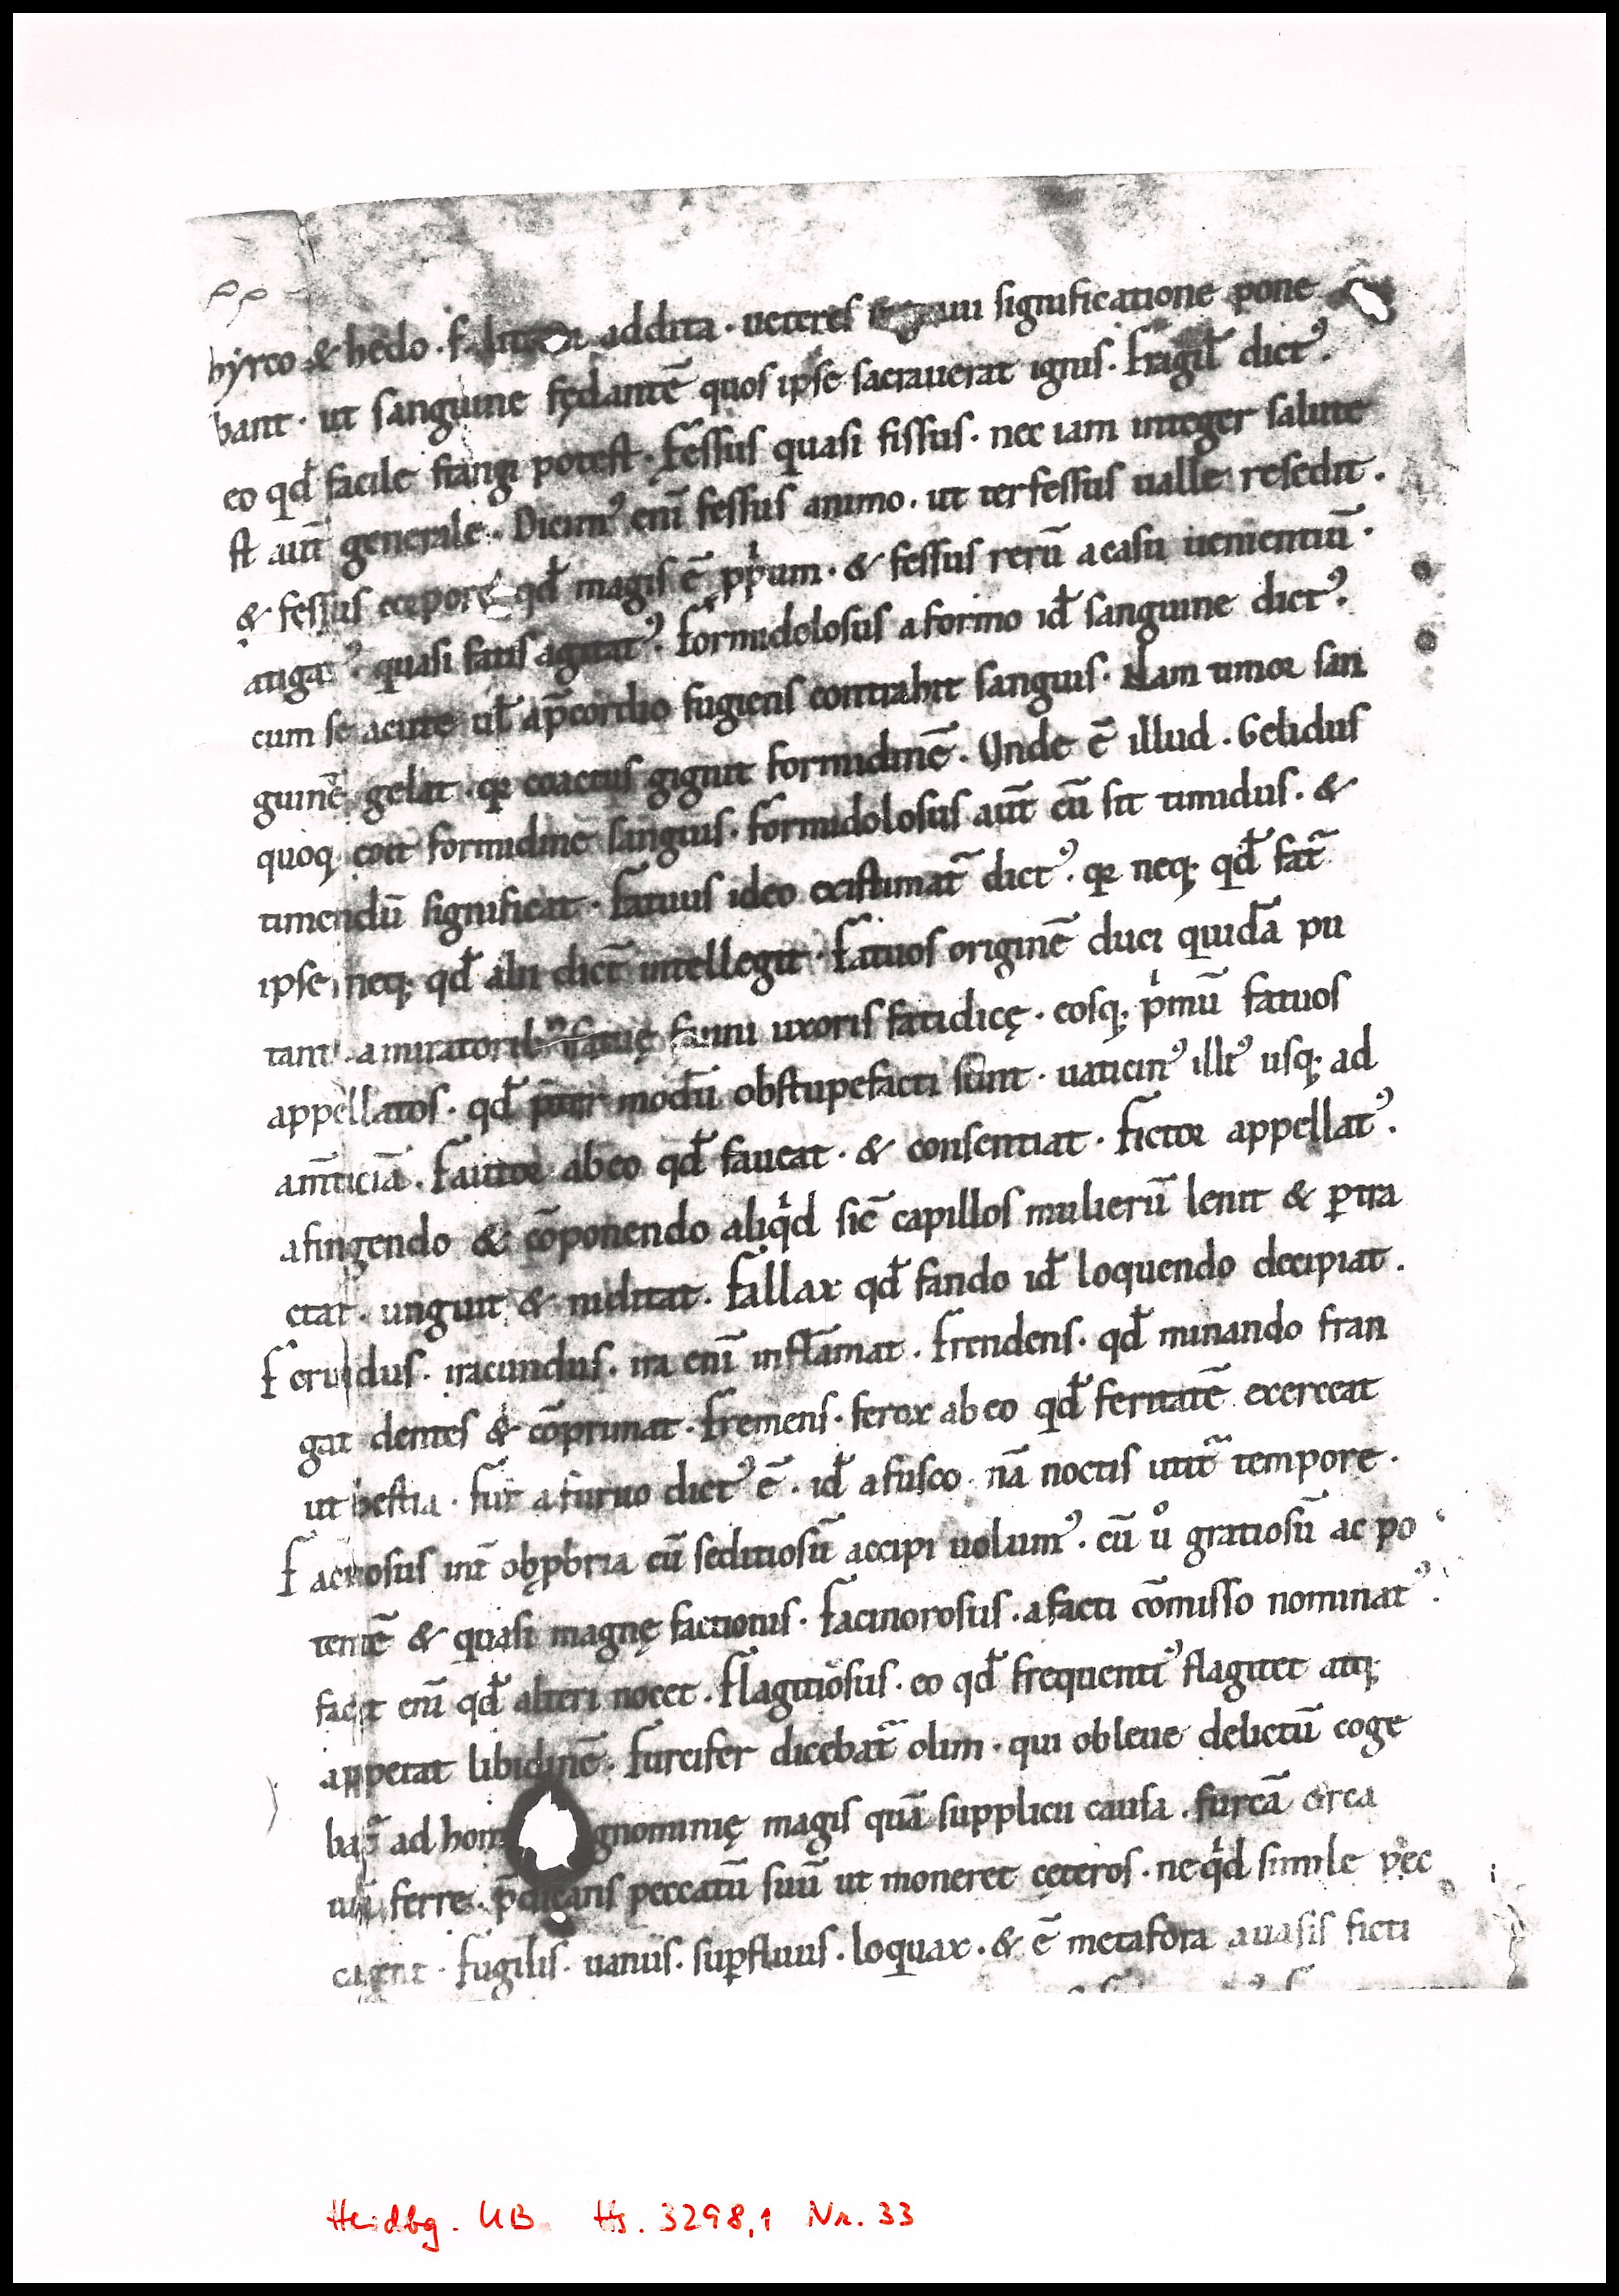 hẏrco & hędo · f. littera addita · ueteres significatione pone
bant · ut sanguine fędantē quos ipse sacrauerat ignis · Fragiľ dictꝰ ·
eo qđ facile frangi potest · Fessus quasi fissus · nec iam integer salute
st aut̄ generale · Dicimꝰ eni̅ fessus animo · ut ter fessus ualle resedit ·
& fessus corpore qđ magis ē ꝓprium · & fessus rerū a casu uenientiū ·
atigatꝰ · quasi fatis agitatꝰ · Formidolosus a formo id̄ sanguine dictꝰ ·
cum se a cute ul̄ a p̄cordio fugiens contrahit sanguis · Nam timor san
guinē gelat · qı coactus gignit formidinē · Unde ē illud · Gelidus
quoq; coit formidine sanguis · Formidolosus aut̄ cū sit timidus · &
timendū significat · Fatuus ideo existimat᷑ dictꝰ · qı neq; qđ fat᷑
ipse neq; qđ alii dict̄ intellegit · Fatuos originē duci quidā pu
tant · a miratoribꝰ fatuę fauni uxoris fatidicę · eosq; pͥmū fatuos
appellatos · qđ p̄ter modū obstupefacti sunt · uaticinꝰ illiꝰ usq; ad
am̄ticiā · Fautor ab eo qđ faueat · & consentiat · Fictor appellatꝰ ·
a fingendo & cōponendo aliqͥd sic̄ capillos mulierū lenit & ꝑtra
ctat · unguit & niditat · Fallax qđ fando id̄ loquendo decipiat ·
Feruidus · iracundus · ira eni̅ inflāmat · Frendens · qđ minando fran
gat dentes & cōprimat · Fremens · ferox ab eo qđ feritatē exerceat
ut bestia · Fur a furuo dictꝰ ē · id̄ a fusco · nā noctis utit᷑ tempore ·
Factiosus int̄ obp̱bria cū seditiosū accipi uolumꝰ · cū uͦ gratiosū ac po
tentē & quasi magnę factionis · Facinorosus · a facti cōmisso nominatꝰ ·
facit eni̅ qđ alteri nocet · Flagitiosus · eo qđ frequentiꝰ flagitet atq;
appetat libidinē · Furcifer dicebat᷑ olim · qui ob leue delictū coge
bat᷑ ad hom gnominię magis quā supplicii causa · furcā circa
uiā ferre · p̄dicans peccatū suū ut moneret cęteros · ne qͥd simile pec
carent · Fugilis · uanus · suꝑfluus · loquax · & ē metafora a uasis ficti
Heidbg. UB Hs. 3298,1 Nr. 33